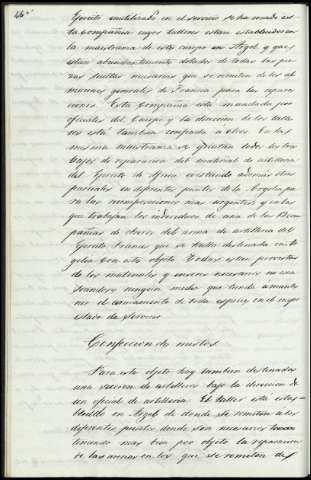 46
Ejercito inutilizado en el servicio se ha creado es-
ta Compañia cuyos talleres estan establecidos en
la maestranza de este cuerpo en Argel y que
estan abundantemente dotados de todas las pie-
zas sueltas necesarias que se remiten de los al-
macenes generales de Francia para las repara-
ciones. Esta Compañia está mandada por
oficiales del Cuerpo y la direccion de los talle-
res está tambien confiada a ellos. En la
misma maestranza se ejecutan todos los tra-
bajos de reparacion del material de artilleria
del Ejercito de Africa existiendo además otros
parciales en diferentes puntos de la Argelia pa-
ra las recomposiciones mas urgentes y en las
que trabajan los individuos de una de las Com-
pañias de obreros del arma de artilleria del
Ejercito Frances que se hallan destinada en Ar-
gelia con este objeto. Todas estan provistas
de los materiales y enseres necesarios no esca-
seandose ningun medio que tienda a mante-
ner el armamento de toda especie en el mejor
estado de servicio.
Confeccion de mistos.
Para este objeto hay tambien destinados
una seccion de artilleros bajo la direccion de
un oficial de artilleria. El taller está esta-
blecido en Argel de donde se remiten a los
diferentes puntos donde son necesarios
teniendo mas bien por objeto la reparacion
de las armas en los que se remiten des